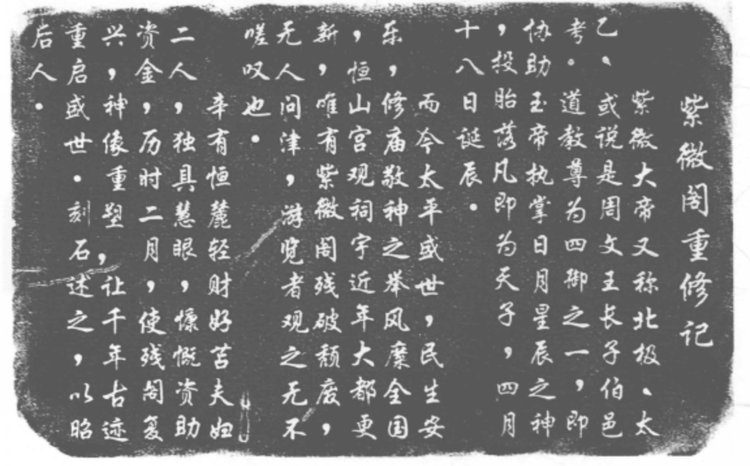 紫微阁重修记
紫微大帝又称北极、太
乙、或说是周文王长子伯邑
考。道教尊为四御之一，即
协助玉帝执掌日月星辰之神
，投胎落凡即为天子，四月
十八日诞辰.
而今太平盛世，民生安
乐，修庙敬神之举风糜全国
，恒山宫观祠宇近年大都更
新，唯有紫微阁残破颓废，
无人问津，游览者观之无不
嗟叹也.
辛有恒麓轻财好苦夫妇
二人，独具慧眼，慷慨资助
资金，历时二月，使残阁复
兴，神像重塑，让千年古迹
重启盛世.刻石述之，以昭
后人.